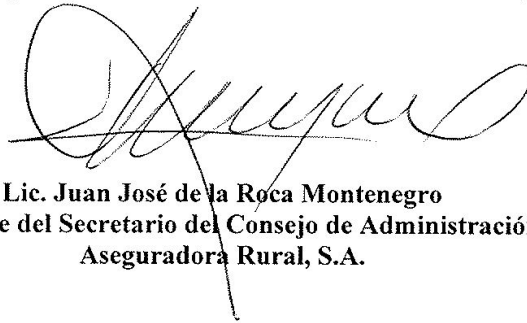 Lic. Juan José de la Roca Montenegro
e del Secretario del Consejo de Administració
Aseguradora Rural, S.A.